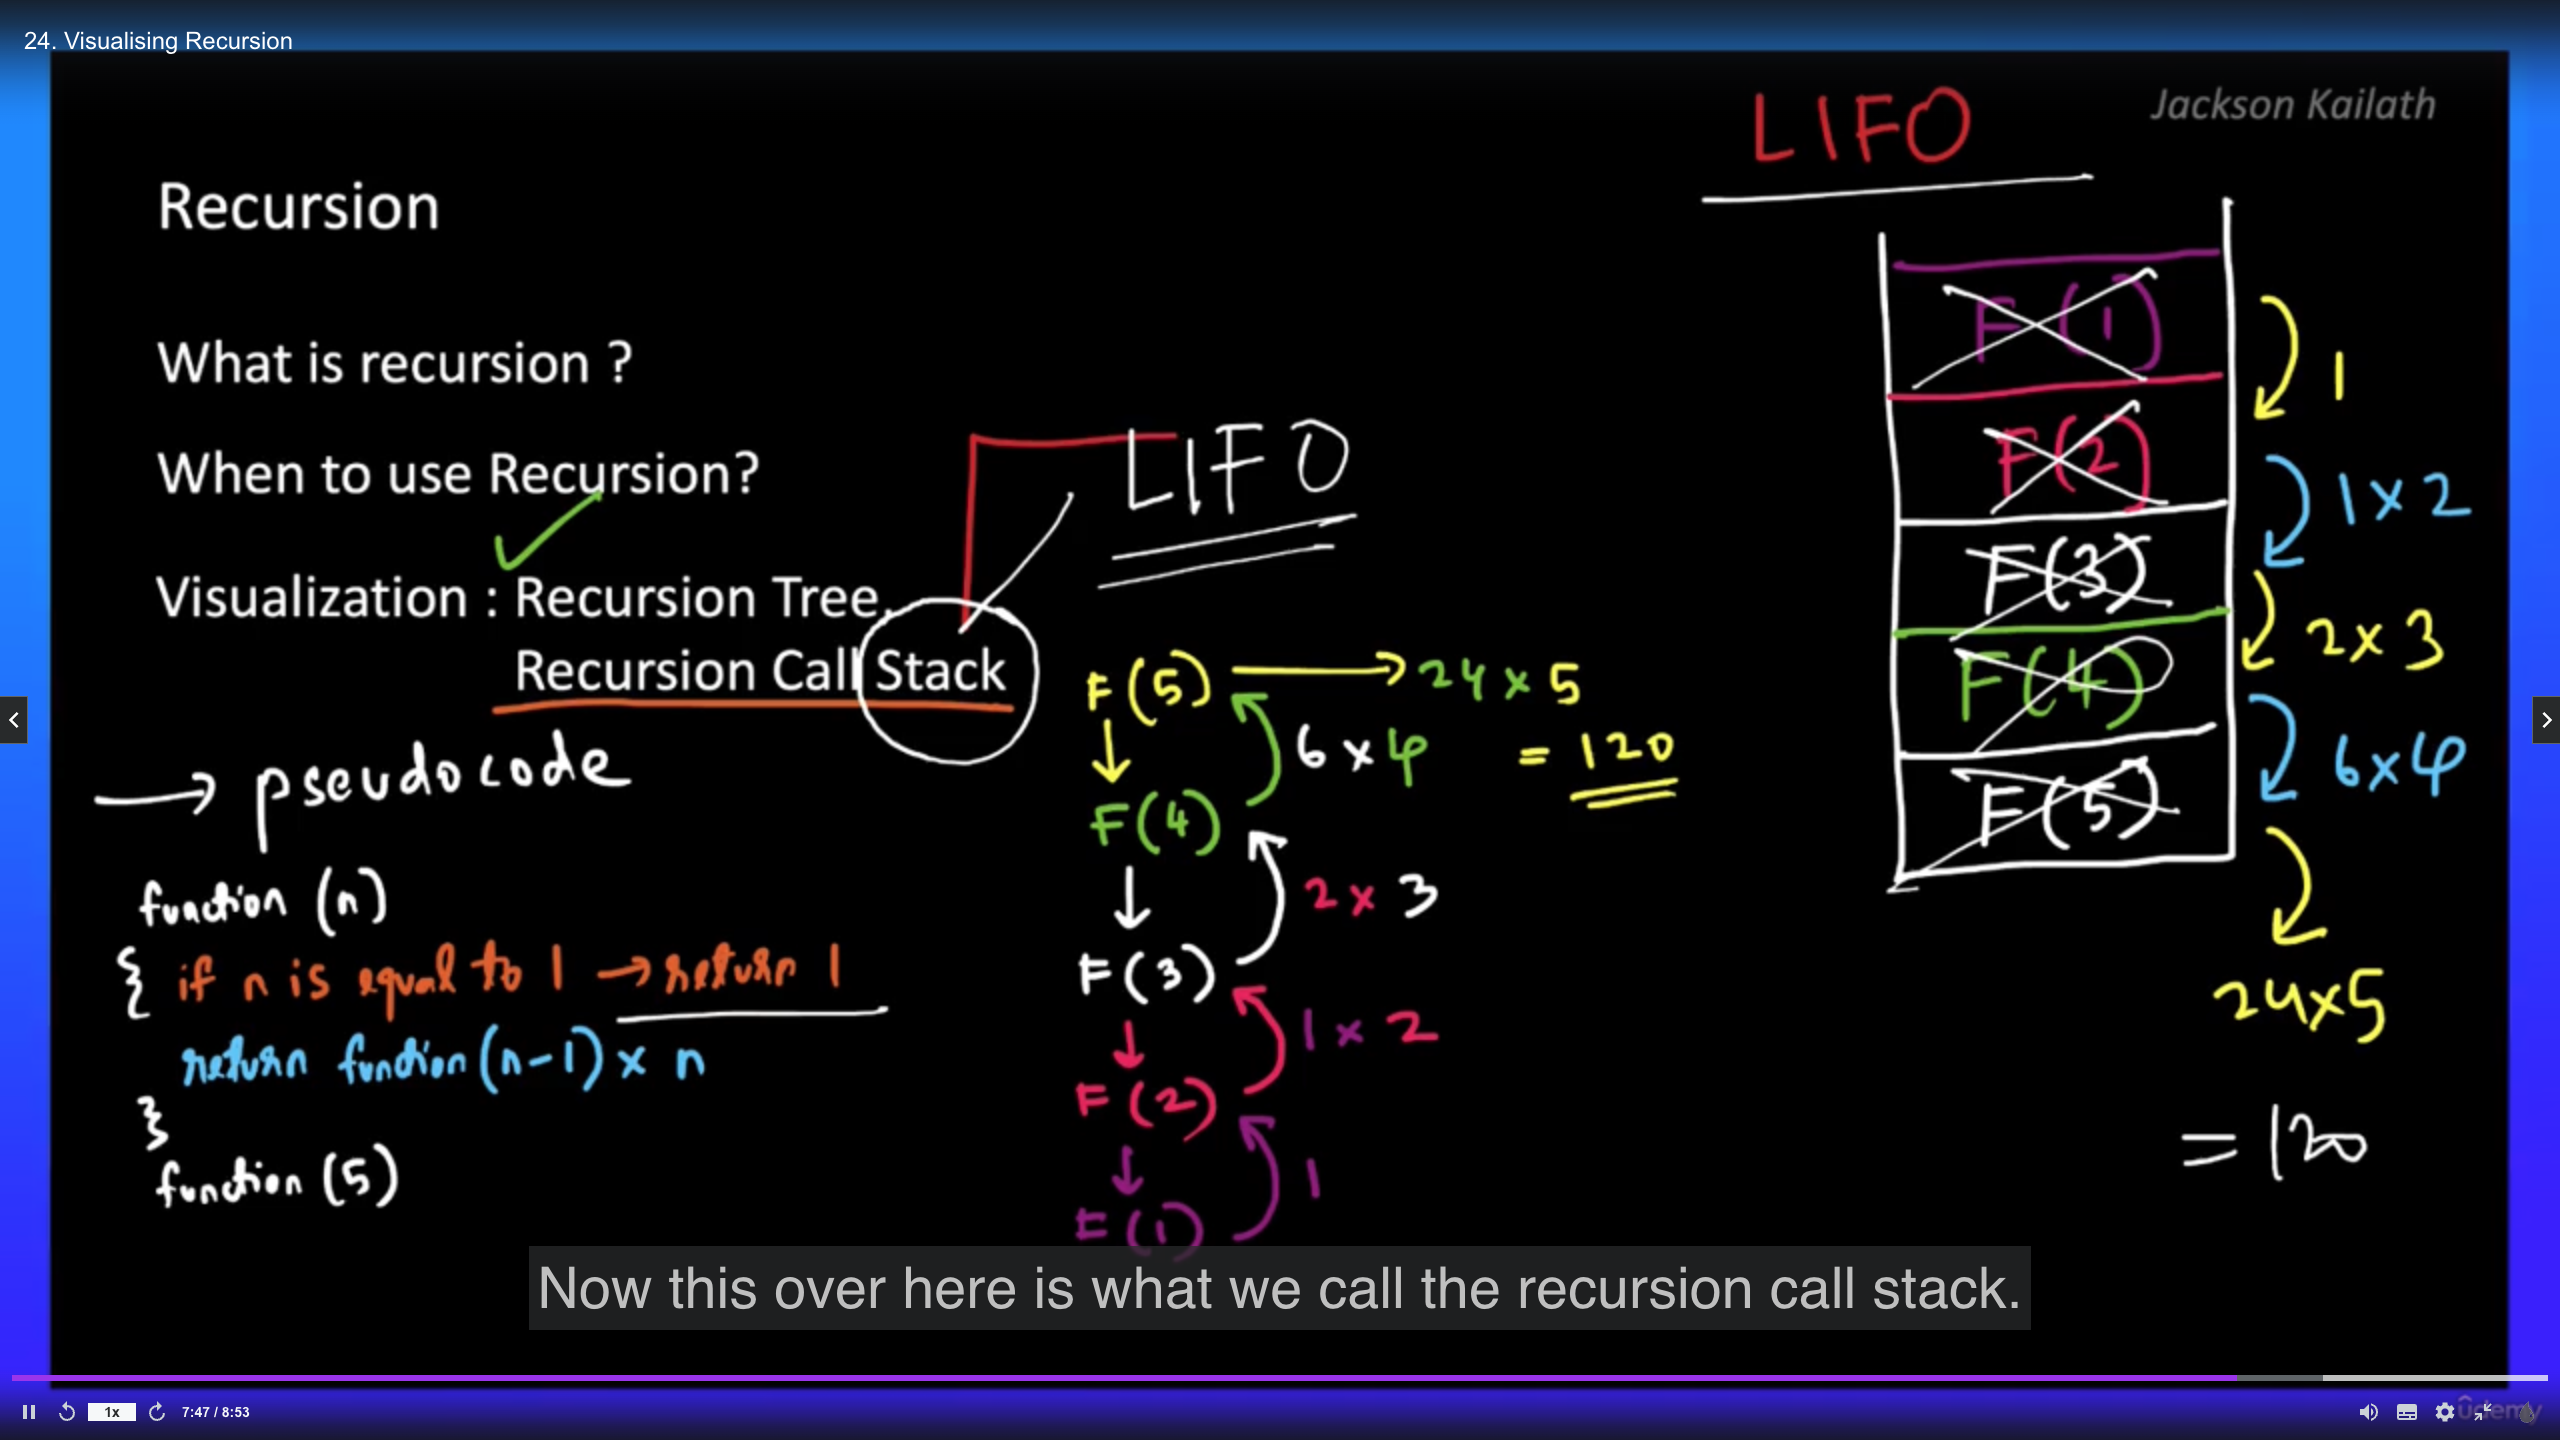 24. Visualising Recursion
Jackson Kailath
Recursion
What is recursion ?
When to use Recursion?
Visualization : Recursion Tree,
Recursion Call Stack
LIFO
→ pseudocode
function (n)
{ if n is equal to 1 → return 1
return function(n-1) x n
}
function (5)
F(5) → 24 x 5
= 120
6 x 4
F(4)
2 x 3
F(3)
1 x 2
F(2)
1
F(1)
LIFO
F(1)
1
F(2)
1 x 2
F(3)
2 x 3
F(4)
6 x 4
F(5)
24 x 5
= 120
Now this over here is what we call the recursion call stack.
1x
7:47 / 8:53
ûdemy